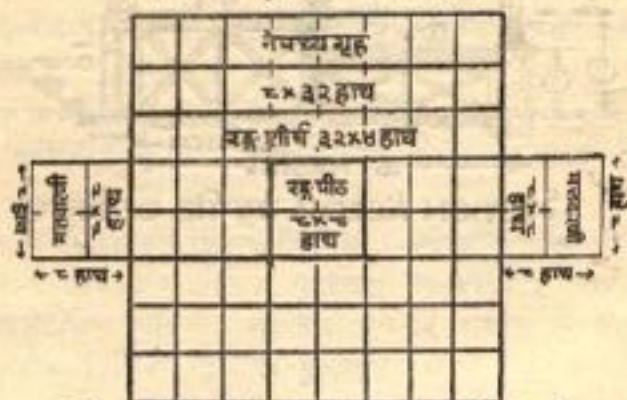 नेपथ्य गृह
८ × ३२ हाथ
रङ्ग शीर्ष ३२×४ हाथ
रङ्ग पीठ
८×८
हाथ
मत्तवारणी
८×८
हाथ
८ हाथ
८ हाथ
मत्तवारणी
८×८
हाथ
८ हाथ
८ हाथ